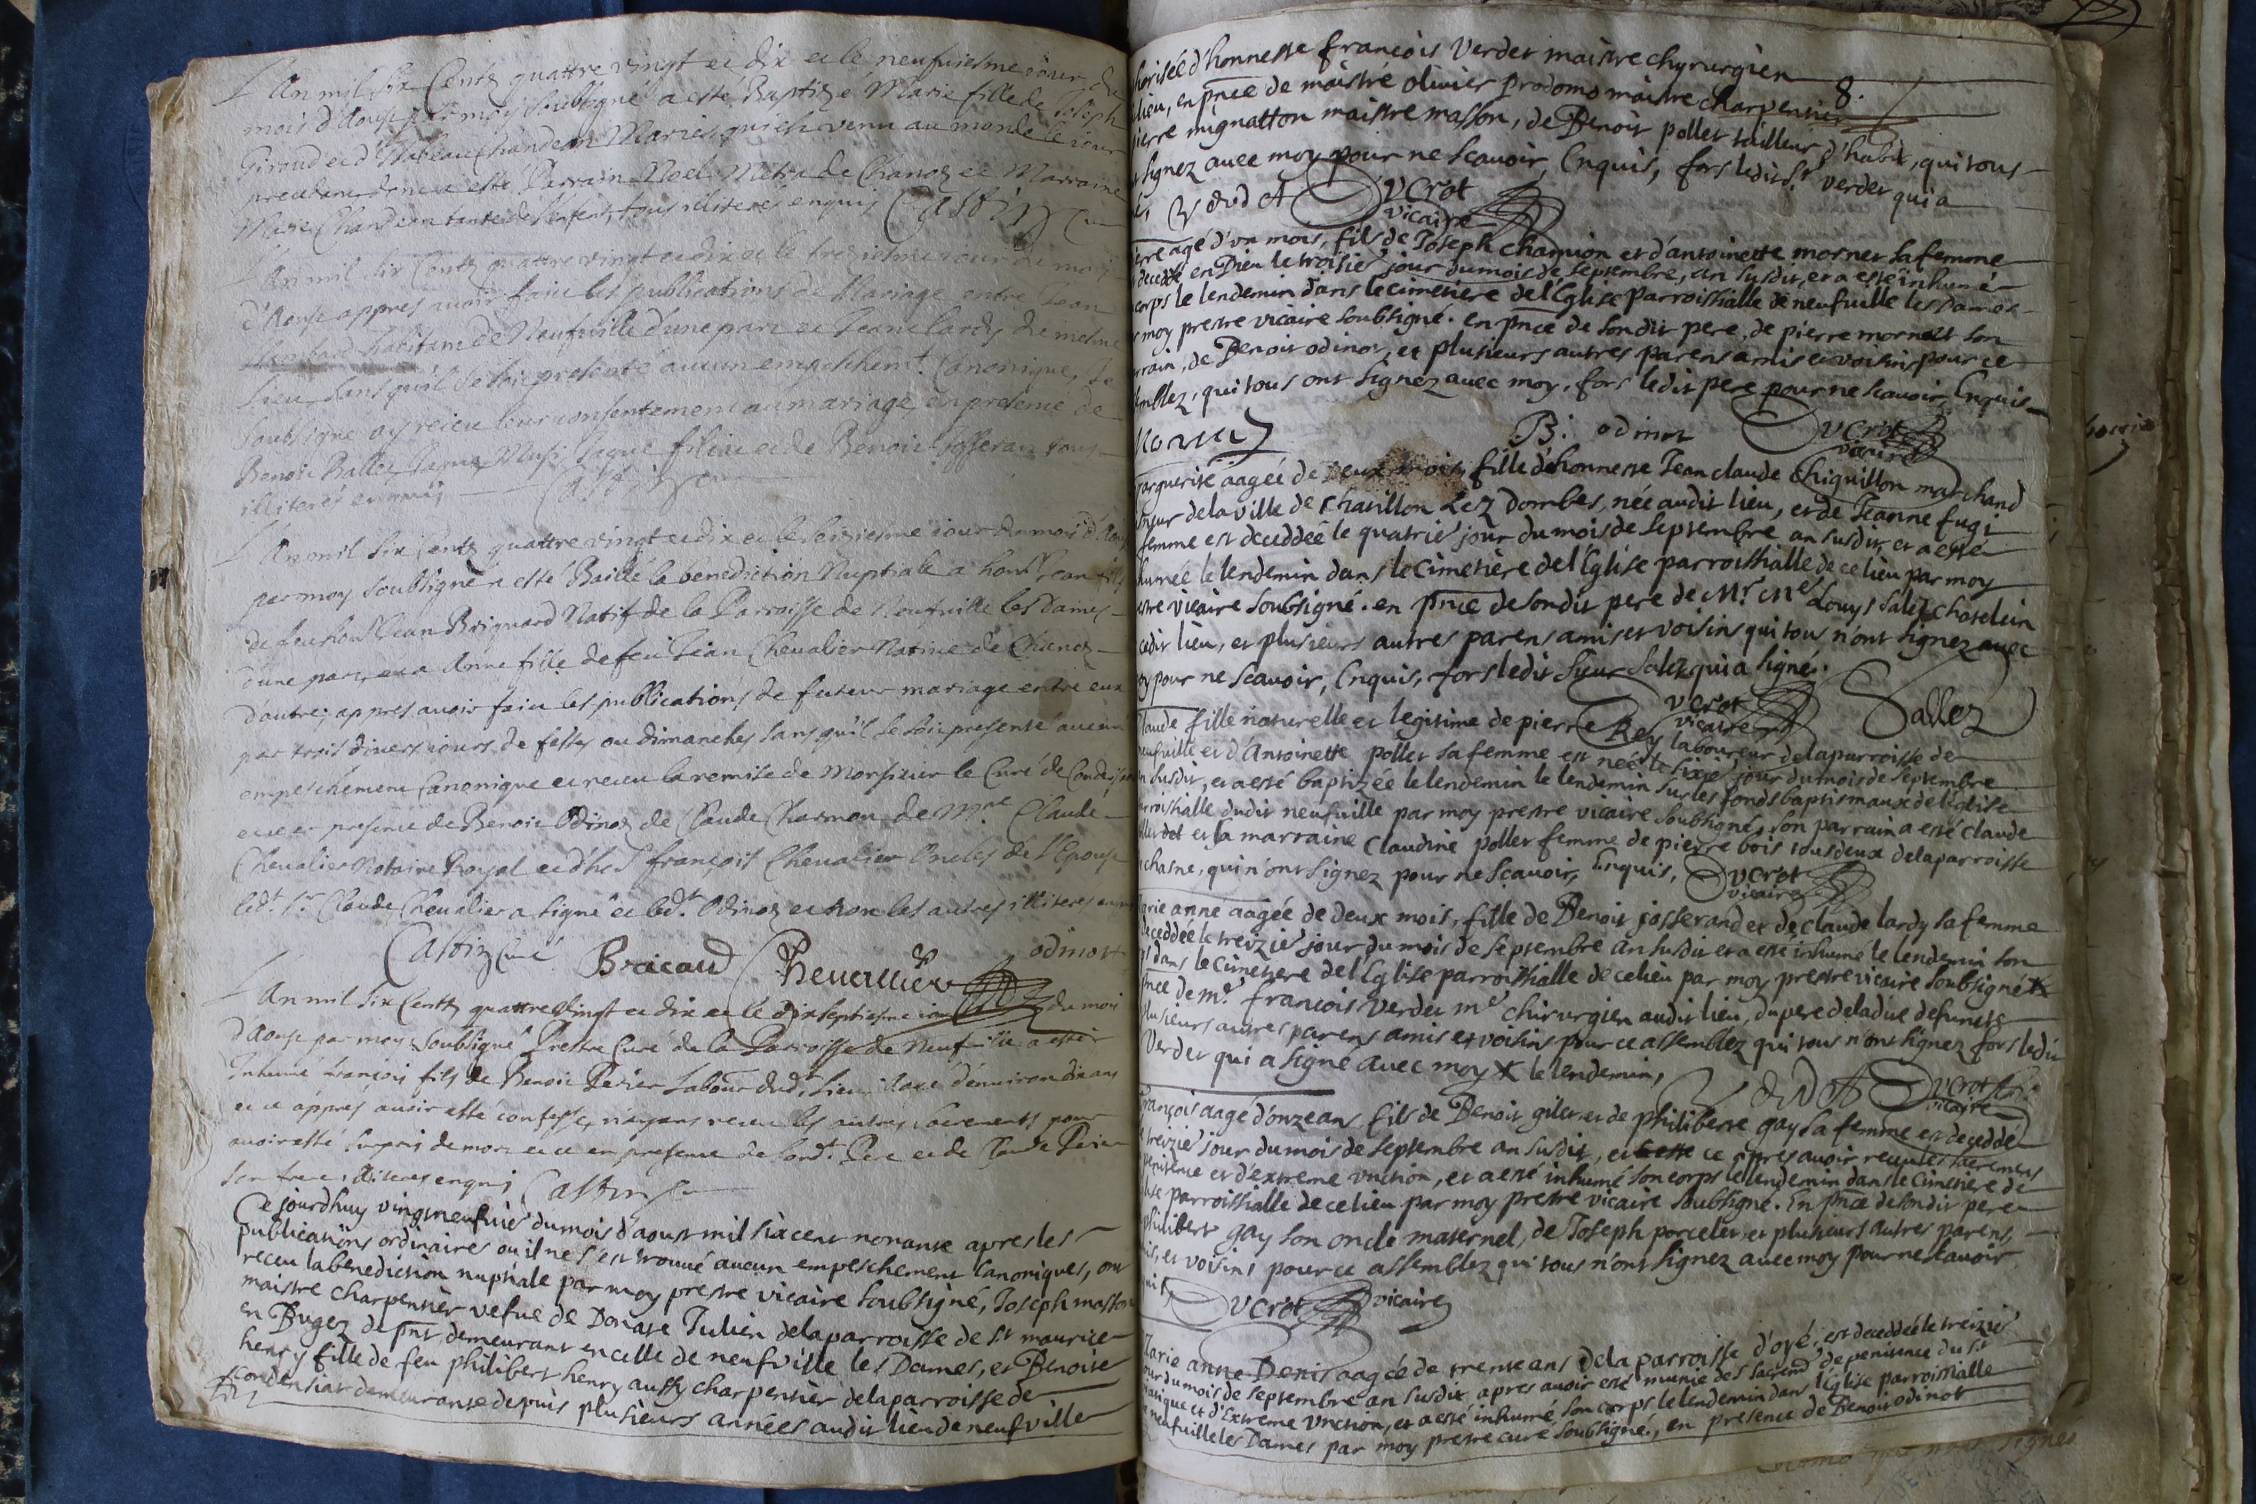 L'An mil six Centz quattre vingt et dix et le neufuiesme iour du
mois d'Aoust par moy soubsigné a esté Baptizé Marie fille de Joseph
Giroud et d' Chandean Mariés qui est venu au monde le iour
precedent son a esté Parrain Noel de Chanoz et Marraine
Marie Chandean tante de l'enfent, tous iliteres enquis Castin Curé
L'An mil six Centz quattre vingt et dix et le treisiesme iour du mois
d'Aoust appres auoir faict les publications de Mariage entre Jean
habitant de Neufuille d'une part et Jeane lardy du mesme
Lieu sans qu'il se soit presenté aucun empeschemt. Canonique, Je
soubsigné ay receu leur consentement au mariage en presence de
Benoit Ballet Jaque et de Benoit Josseran tous
illiterés enquis Castin Cure
L'An mil six Centz quattre vingt et dix et le seiziesme iour du mois d'Aoust
par moy soubsigné a esté Baillé la benediction Nuptiale a honle Jean fils
de feu honle Jean Brignard Natif de la Parroisse de Neufuille les Dames
d'une part, et a Anne fille de feu Jean Cheualier Natiue de Chanoz
d'autre, appres auoir faict les publications de futeur mariage entre eux
par trois diuers iours de festes ou dimanches sans qu'il se soit presenté aucun
empeschement Canonique et receu la remise de Monsieur le Curé de
et ce en presence de Benoit Odinoz de Claude Charmon de Mre. Claude
Cheualier Notaire Royal et d'hle françois Cheualier Oncles de l'Epouse
ledt. sr. Claude Cheualier a signé et ledt. Odinoz et non les autres illiteres enquis
Castin Curé Bricaud Cheuallier odinot
L'An mil six Centz quattre vingt et dix et le dix septiesme iour du mois
d'Aoust par moy soubsigné Prestre Curé de la Parroisse de Neufuille a esté
Inhumé françois fils de Benoit Perier Labour. dudt. Lieu d'enuiron dix ans
et ce appres auoir esté confessé, n'ayant receu les autres sacrements pour
auoir esté surpris de mort et ce en presence de sondt. Pere et de Claude Perier
son frere, illiteres enquis Castin Cure
Ce jourdhuy vingtneufuie du mois d'aoust mil six cent nonante apres les
publications ordinaires ou il ne s'est trouué aucun empeschement Canoniques, ont
receu la benediction nuptiale par moy prestre vicaire soubsigné, Joseph masson
maistre charpentier vefue de Donate Julien de la parroisse de st maurice
en Bugez de pnt demeurant en celle de neufville les Dames, et Benoite
henry fille de feu philibert henry aussy charpentier de la parroisse de
Condensiat demeurante depuis plusieurs années audit lieu de neufville
8.
horisée d'honneste francois Verder maistre chyrurgien
lieu, en pnce de maistre olivier prodomo maistre charpentier
ierre mignatton maistre masson, de Benoit pollet tailleur d'habit, qui tous
signez auec moy pour ne scauoir, Enquis, fors ledit sr verder qui a
é, Verder Ducrot
vicaire
erre agé d'vn mois, fils de Joseph Champion et d'antoinette mornet sa femme
decedé en Dieu le troisie jour du mois de septembre, an susdit, et a esté inhumé
corps le lendemin dans le cimetiere de l'Eglise parroissialle de neufuille les Dames
moy prestre vicaire soubsigné. en pnce de sondit pere, de pierre mornet son
rrain, de Benoit odinot, et plusieurs autres parens amis et voisins pour ce
emblez, qui tous ont signez auec moy, fors ledit pere pour ne scauoir, Enquis
Mornet B. odinot Ducrot
vicaire
arguerite aagée de deux mois, fille d'honneste Jean claude Chiquillon marchand
neur de la ville de Chatillon Lez Dombes, née audit lieu, et de Jeanne fugi
femme est deceddée le quatrie jour du mois de septembre an susdit, et a esté
humée le lendemin dans le cimetiere de l'Eglise parroissialle de ce lieu par moy
stre vicaire soubsigné. en pnce de sondit pere de Mr. Me Louys Salez chatelein
cedit lieu, et plusieurs autres parens amis et voisins qui tous n'ont signez auec
oy pour ne scauoir, Enquis, fors ledit sieur Salez qui a signé.
Ducrot
vicaire Sallez
laude fille naturelle et legitime de pierre Rey laboureur de la parroisse de
eufuille et d'Antoinette pollet sa femme est née le sixie jour du mois de septembre
n susdit, et a esté baptizée le lendemin le lendemin sur les fonds baptismaux de l'Eglise
rroissialle dudit neufuille par moy prestre vicaire soubsigné, son parrain a esté claude
et la marraine Claudine pollet femme de pierre bois tous deux de la parroisse
chasne, qui n'ont signez pour ne scauoir, Enquis, Ducrot
vicaire
arie anne aagée de deux mois, fille de Benoit josserand et de claude lardy sa femme
deceddée le treizie jour du mois de septembre an susdit et a esté inhumé le lendemin son
s dans le cimetiere de l'Eglise parroissialle de ce lieu par moy prestre vicaire soubsigné X
pnce de me. francois Verder me chirurgien audit lieu, du pere de la dite defuncte
lusieurs autres parens amis et voisins pour ce assemblez qui tous n'ont signez fors ledit
Verder qui a signé auec moy X le lendemin,
Verder Ducrot
vicaire
rançois aagé d'onze ans, fils de Benoit gilet et de philiberte gay sa femme est deceddé
treizie jour du mois de septembre an susdit, et ce apres auoir receu les sacremens
penitence et d'extreme vnction, et a esté inhumé son corps le lendemin dans le Cimetiere de
lise parroissialle de ce lieu par moy prestre vicaire soubsigné. En pnce de sondit pere
philibert gay son oncle maternel, de Joseph porcelet, et plusieurs autres parens,
is, et voisins pour ce assemblez qui tous n'ont signez auec moy pour ne scauoir
uis, Ducrot vicaire
Marie anne Denis aagée de trente ans de la parroisse d'oyé, est deceddée le treizie
our du mois de septembre an susdit apres auoir esté munie des sacrem de penitence du st
iatique et d'Extreme Vnction, et a esté inhumé son corps le lendemin dans l'église parroissialle
neufuille les Dames par moy prestre curé soubsigné, en presence de Benoit odinot
signes